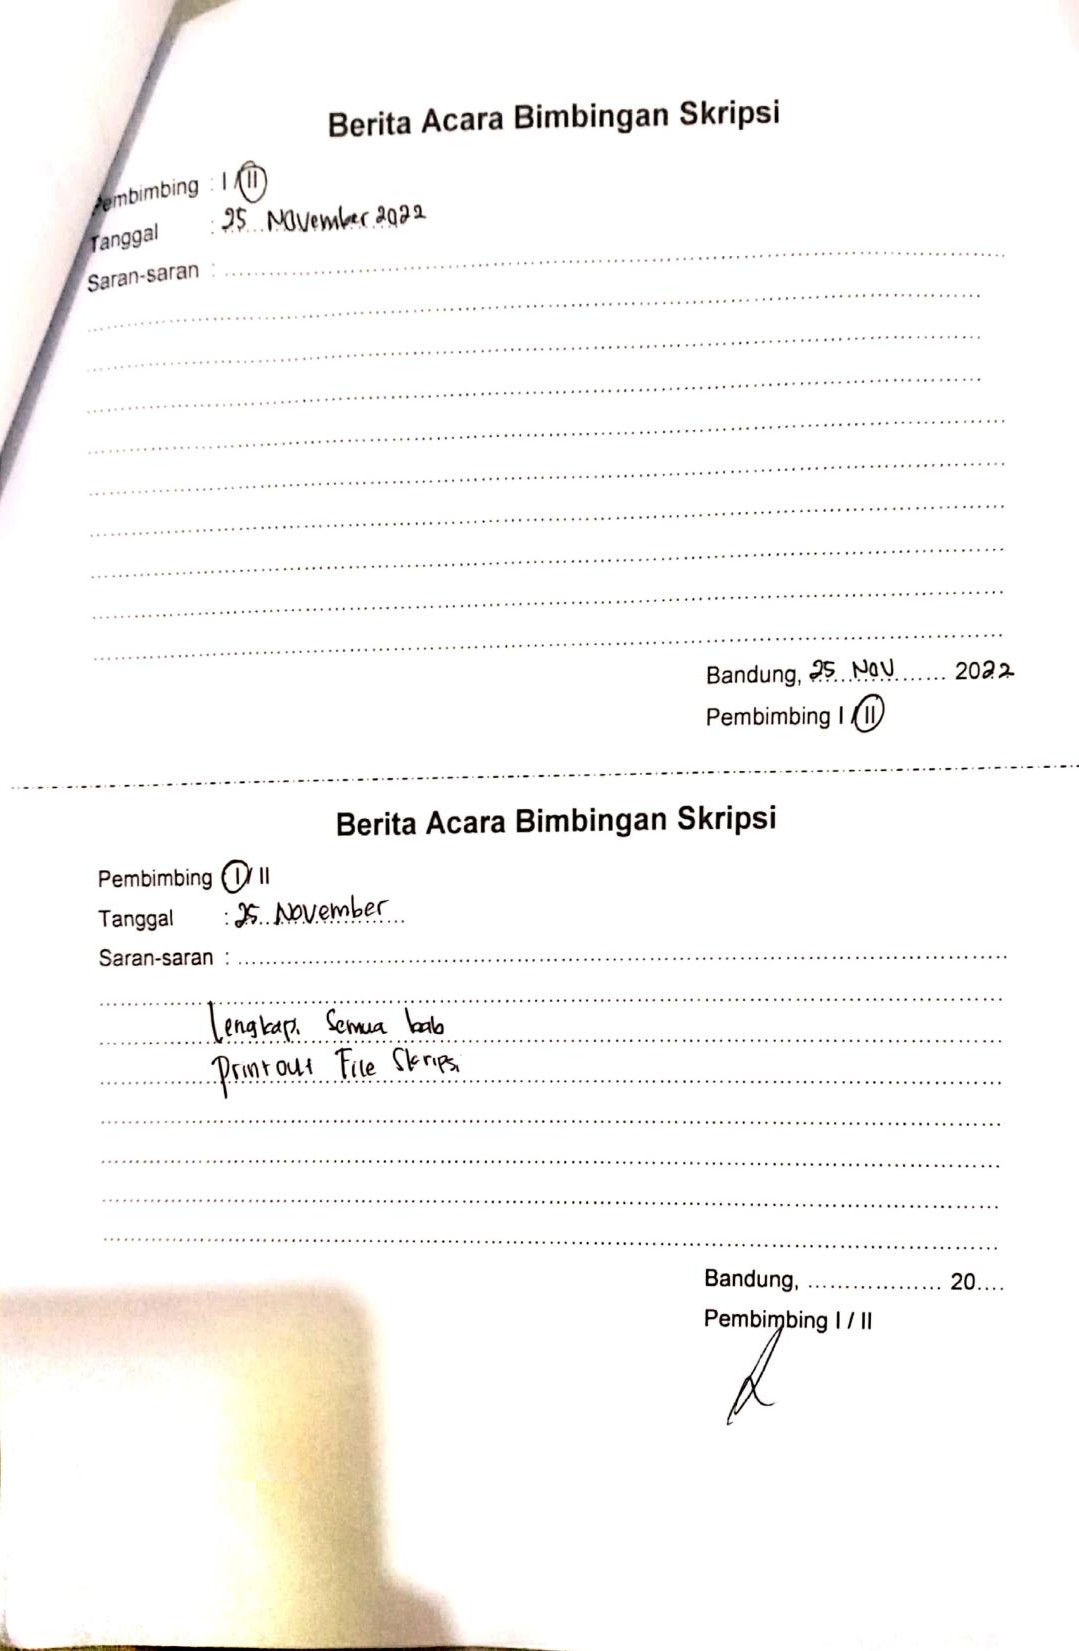 Berita Acara Bimbingan Skripsi
Pembimbing : I / II
Tanggal : 25 November 2022
Saran-saran :
Bandung, 25 Nov 2022
Pembimbing I / II
Berita Acara Bimbingan Skripsi
Pembimbing I / II
Tanggal : 25 November
Saran-saran :
Lengkapi Semua bab
Printout File Skripsi
Bandung, .................. 20....
Pembimbing I / II